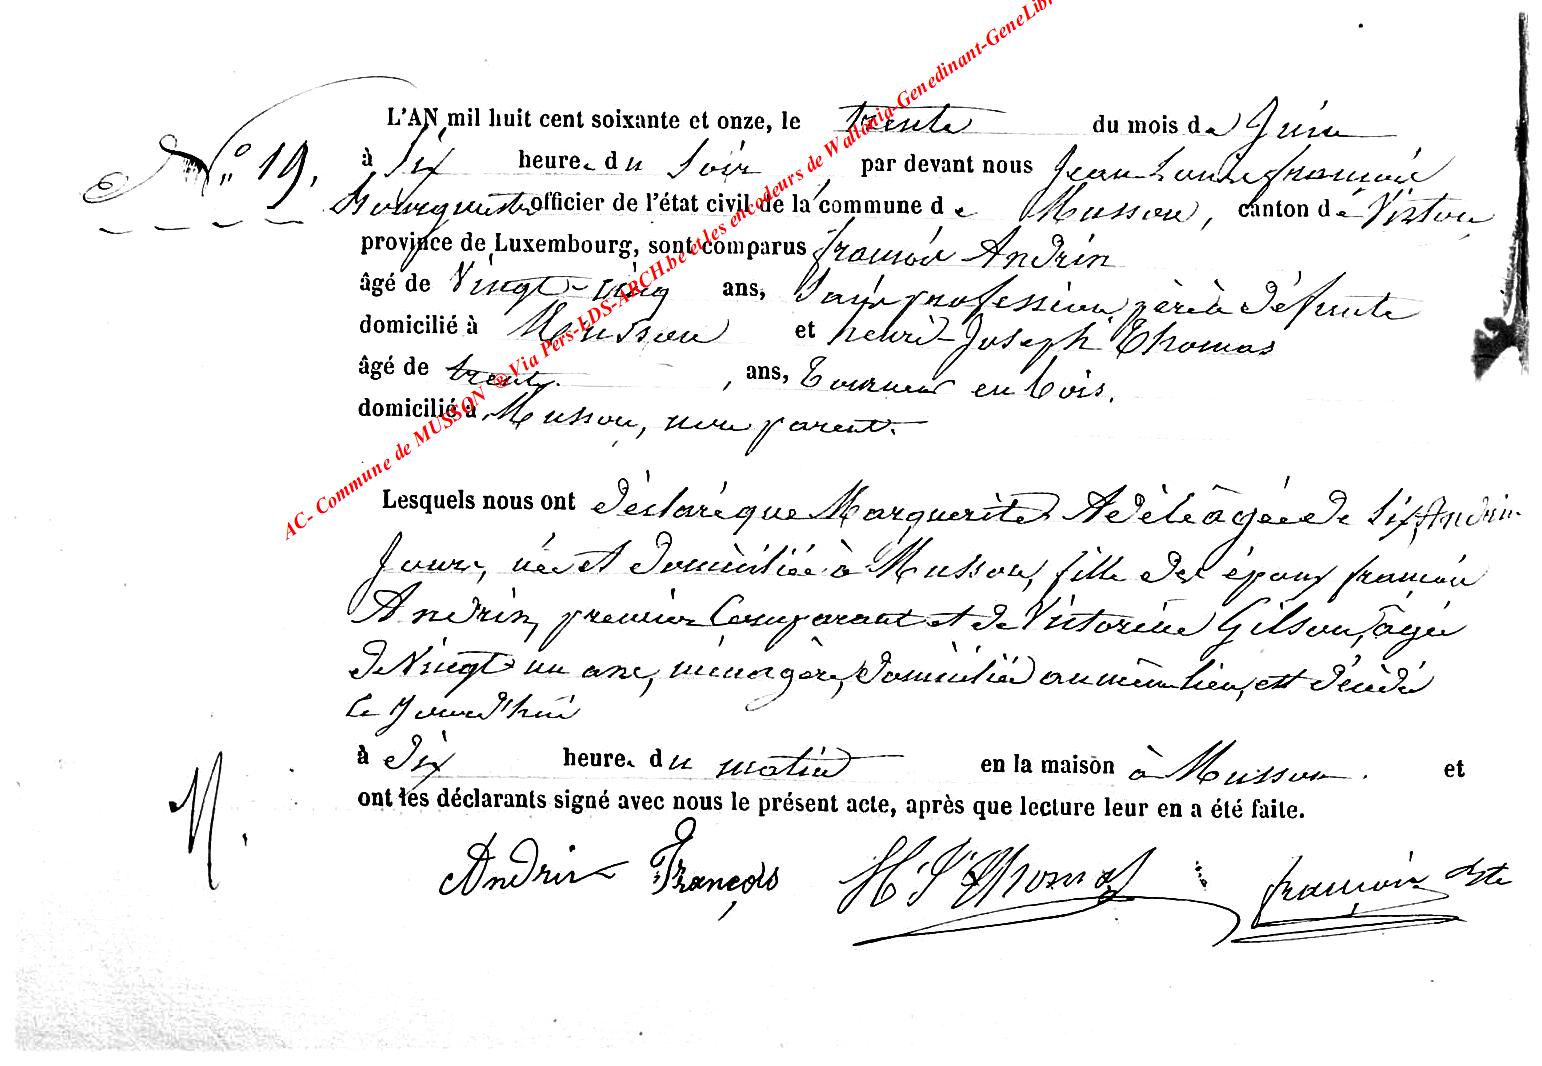 N° 19.
L'AN mil huit cent soixante et onze, le trente du mois de Juin
à Six heures du Soir par devant nous Jean Louis françois
officier de l'état civil de la commune de Musson, canton de Virton
province de Luxembourg, sont comparus françois Andrin
âgé de Vingt-cinq ans, Sans profession père à défunte
domicilié à Musson et henri-Joseph Thomas
âgé de trente , ans, Tourneur en bois.
domicilié à Musson, non parent.
Lesquels nous ont déclaré que Marguerite Adèle âgée de Six, Andrin
Jours, née et domiciliée à Musson, fille des époux françois
Andrin, premier Comparant et de Victorine Gilson, âgée
de Vingt un ans, ménagère, domiciliée au même lieu, est décédée
Ce Jourd'hui
à dix heures du matin en la maison à Musson. et
ont les déclarants signé avec nous le présent acte, après que lecture leur en a été faite.
N.
Andrin François H J Thomas françois
AC- Commune de MUSSON @ Via Pers-LDS-ARCH.be et les encodeurs de Wallonia-Genedinant-GeneLibr